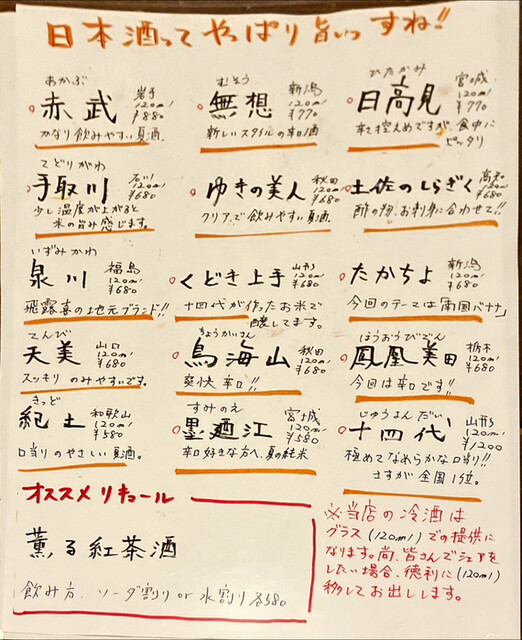 日本酒ってやっぱり旨いっすね!!
あかぶ
赤武
岩手
120ml
¥880
かなり飲みやすい夏酒。
むそう
無想
新潟
120ml
¥770
新しいスタイルの辛口酒
ひたかみ
日高見
宮城
120ml
¥770
控えめですが、食中に
ピッタリ
てどりがわ
手取川
石川
120ml
¥680
少し温度が上がると
米の旨み感じます。
ゆきの美人
秋田
120ml
¥680
クリアで飲みやすい夏酒
土佐のしらぎく
高知
120ml
¥680
酢の物、お刺身に合わせて!!
いずみかわ
泉川
福島
120ml
¥680
飛露喜の地元ブランド!!
くどき上手
山形
120ml
¥680
十四代が作ったお米で
醸してます。
たかちよ
新潟
120ml
¥680
今回のテーマは「南国バナナ」
てんび
天美
山口
120ml
¥680
スッキリのみやすいです。
ちょうかいさん
鳥海山
秋田
120ml
¥680
爽快辛口!!
ほうおうびでん
鳳凰美田
栃木
120ml
¥680
今回は辛口です!!
きっど
紀土
和歌山
120ml
¥580
口当りのやさしい夏酒。
すみのえ
墨廼江
宮城
120ml
¥580
辛口好きな方へ、夏の純米
じゅうよんだい
十四代
山形
120ml
¥1200
極めてなめらかな口当り!!
さすが全国1位。
オススメリキュール
薫る紅茶酒
飲み方、ソーダ割り or 水割り 各580
※当店の冷酒は
グラス(120ml)での提供に
なります。尚、皆さんでシェアを
したい場合、徳利に(120ml)
移してお出しします。